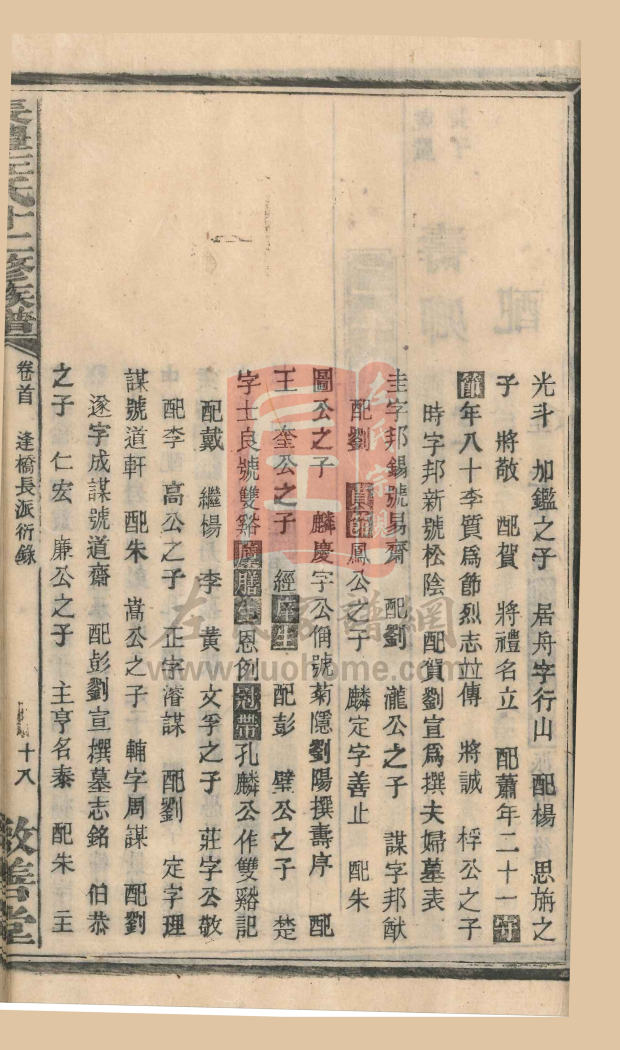 光斗 加鑑之子 居舟字行山 配楊 思旃之
子 將敬 配賀 將禮名立 配蕭年二十一守
節年八十李質爲節烈志並傳 將誠 桴公之子
時字邦新號松陰 配賀劉宣爲撰夫婦墓表
圭字邦錫號易齋 配劉 瀧公之子 謀字邦猷
配劉 貞節鳳公之子 麟定字善止 配朱
圖公之子 麟慶字公佣號菊隱劉陽撰壽序 配
王 奎公之子 經庠生 配彭 璧公之子 楚
字士良號雙谿廩膳生恩例冠帶孔麟公作雙谿記
配戴 繼楊 李 黃 文孚之子 莊字公敬
配李 高公之子 正字濬謀 配劉 定字理
謀號道軒 配朱 嵩公之子 輔字周謀 配劉
遂字成謀號道齋 配彭劉宣撰墓志銘 伯恭
之子 仁宏 廉公之子 主亨名泰 配朱 主
長豐左氏十二修族譜
卷首 逢橋長派衍錄
十八
敦善堂
左氏宗親
左氏家譜網
www.zuohome.com